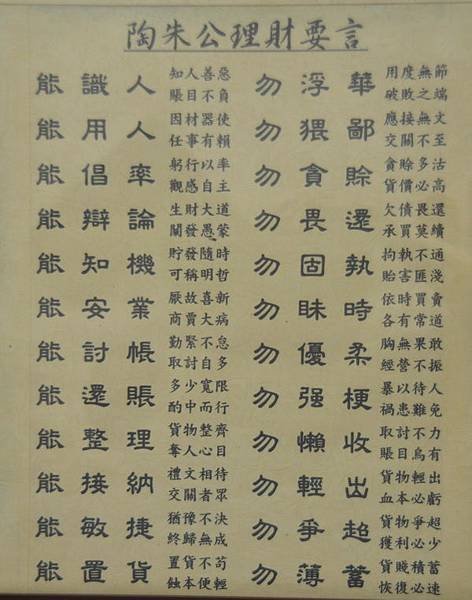 陶朱公理財要言
能識人 知人善惡 賬目不負 勿浮華 用度無節 破敗之端
能用人 因材器使 任事有賴 勿猥鄙 應接無文 交關不至
能倡率 躬行以率 觀感自主 勿貪賒 貪賒多沽 貨價必高
能辯論 生財大道 開發愚蒙 勿畏還 欠債畏還 承買莫續
能知機 貯發隨時 可稱明哲 勿固執 拘執不通 貽害匪淺
能安業 厭故喜新 商賈大病 勿昧時 依時買賣 各有常道
能討帳 勤緊不怠 取討自多 勿優柔 胸無果敢 經營不振
能還賬 多少寬限 酌中而行 勿强梗 暴以待人 禍患難免
能整理 貨物整齊 奪人心目 勿懶收 取討不力 賬目烏有
能接納 禮文相待 交關者眾 勿輕出 貨物輕出 血本必虧
能敏捷 猶豫不決 終歸無成 勿爭超 貨物爭超 獲利必少
能置貨 置貨不苟 蝕本便輕 勿薄蓄 貨賤積蓄 恢復必速